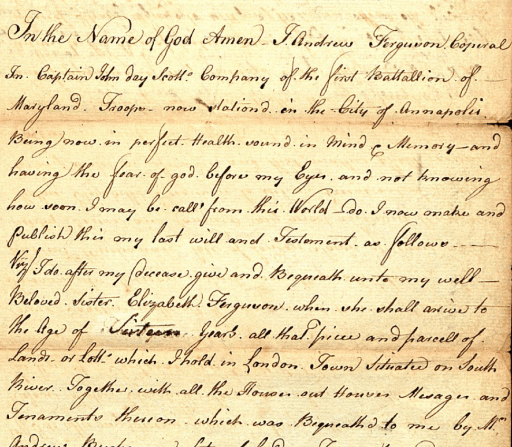 In the Name of God Amen - I Andrew Ferguson Coperal
In Captain John day Scotts Company of the first Battallion of
Maryland Troops now stationd in the City of Annapolis
Being now in perfect Health sound in Mind & Memory - and
having the fear of god before my Eyes and not knowing
how soon I may be call'd from this World - do I now make and
Publish this my last will and Testement as follows
Viz/ I do after my decease give and Bequeath unto my well
Beloved Sister Elizabeth Ferguson when she shall arive to
the Age of Sixteen Years all that piece and parcell of
Land or Lotts which I hold in London Town Situated on South
River Together with all the Houses out Houses Mesages and
Tenaments thereon which was Bequeath'd to me by Mr
Andrew